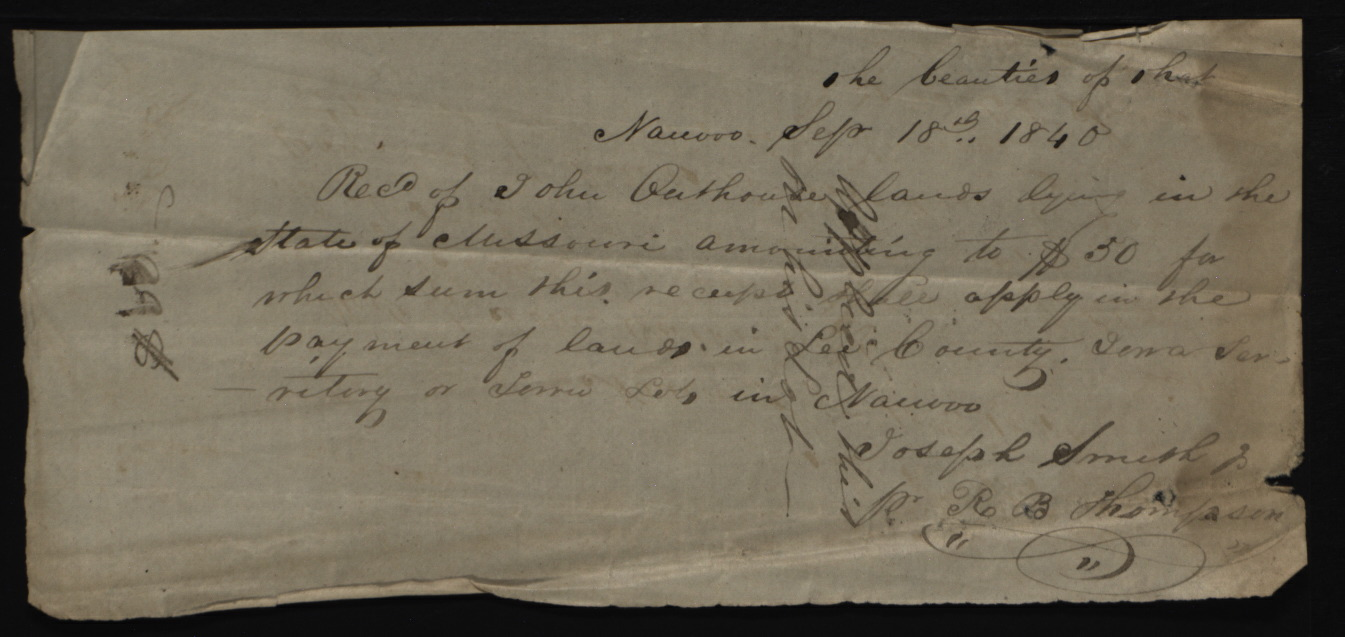 the beauties of that
Nauvoo. Sep 18th. 1840
Recd of John Outhouse lands lying in the
State of Missouri amounting to $ 50 for
which sum this receipt shall apply in the
payment of lands in Lee County, Iowa Ter-
-ritory or Town Lots in Nauvoo
Joseph Smith Jr
Pr R B Thompson
this
on his Lot
$